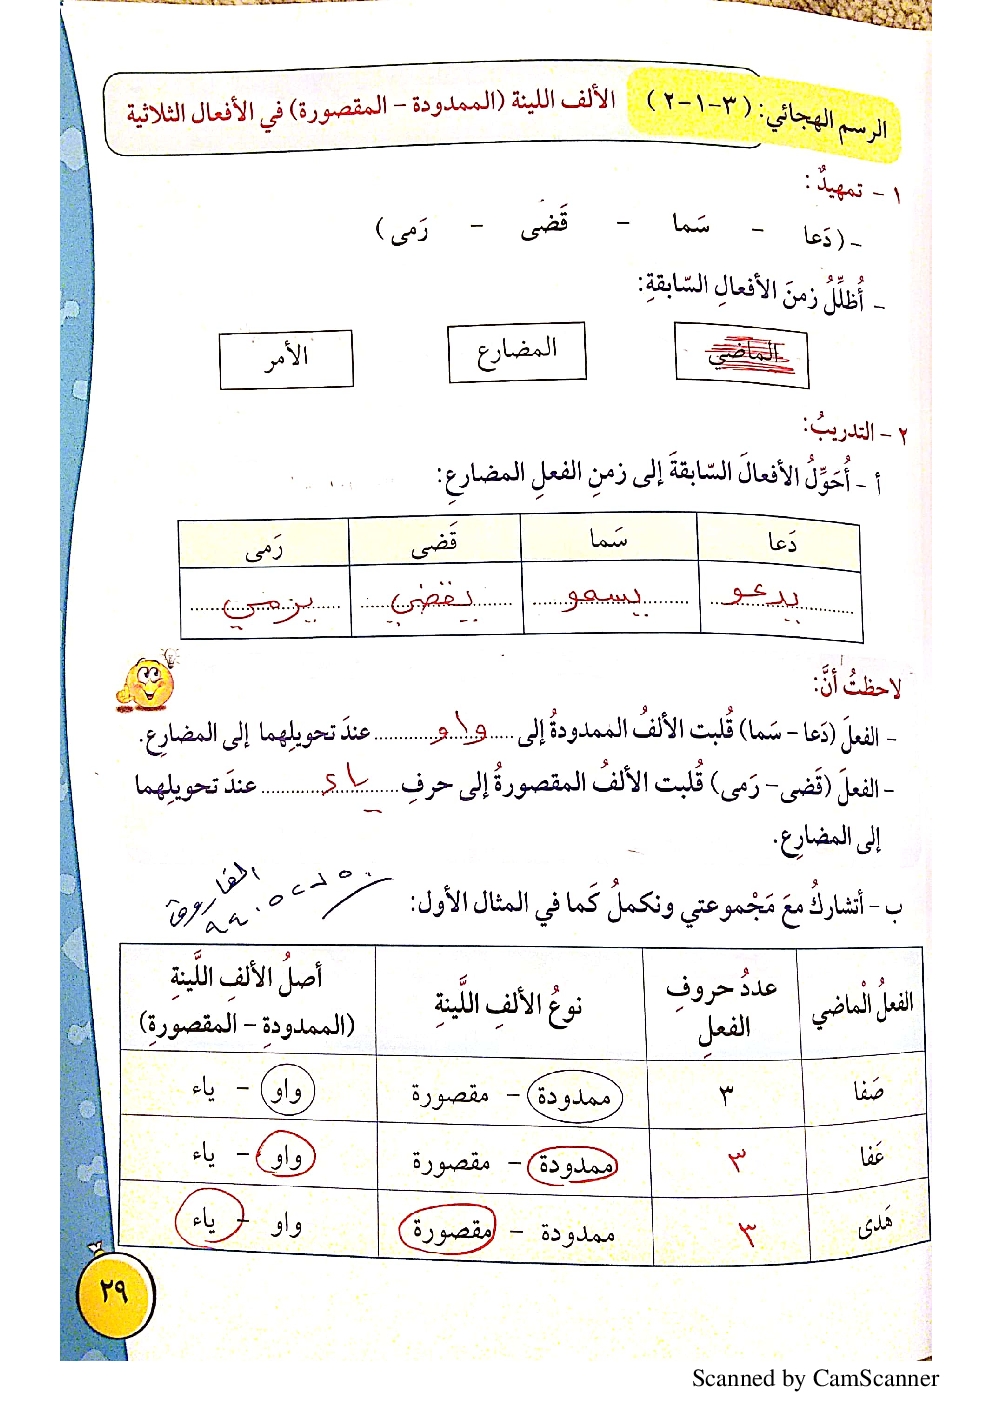 الرسم الهجائي: (٣-١-٢) الألف اللينة (الممدودة - المقصورة) في الأفعال الثلاثية
١ - تمهيدٌ:
- (دَعا - سَما - قَضى - رَمى)
- أُظلِّلُ زمنَ الأفعالِ السّابقةِ:
الماضي المضارع الأمر
٢ - التدريبُ:
أ - أُحَوِّلُ الأفعالَ السّابقةَ إلى زمنِ الفعلِ المضارعِ:
دَعا سَما قَضى رَمى
يدعو يسمو يقضي يرمي
لاحظتُ أنَّ:
- الفعلَ (دَعا - سَما) قُلبت الألفُ الممدودةُ إلى ..... واو ..... عندَ تحويلِهما إلى المضارعِ.
- الفعلَ (قَضى - رَمى) قُلبت الألفُ المقصورةُ إلى حرفِ ..... ياء ..... عندَ تحويلِهما
إلى المضارعِ.
ب - أتشاركُ معَ مَجْموعتي ونكملُ كَما في المثال الأول:
الفعلُ الْماضي عددُ حروفِ الفعلِ نوعُ الألفِ اللَّينةِ أصلُ الألفِ اللَّينةِ (الممدودةِ - المقصورةِ)
صَفا ٣ ممدودة - مقصورة واو - ياء
عَفا ٣ ممدودة - مقصورة واو - ياء
هَدى ٣ ممدودة - مقصورة واو - ياء
٢٩
Scanned by CamScanner